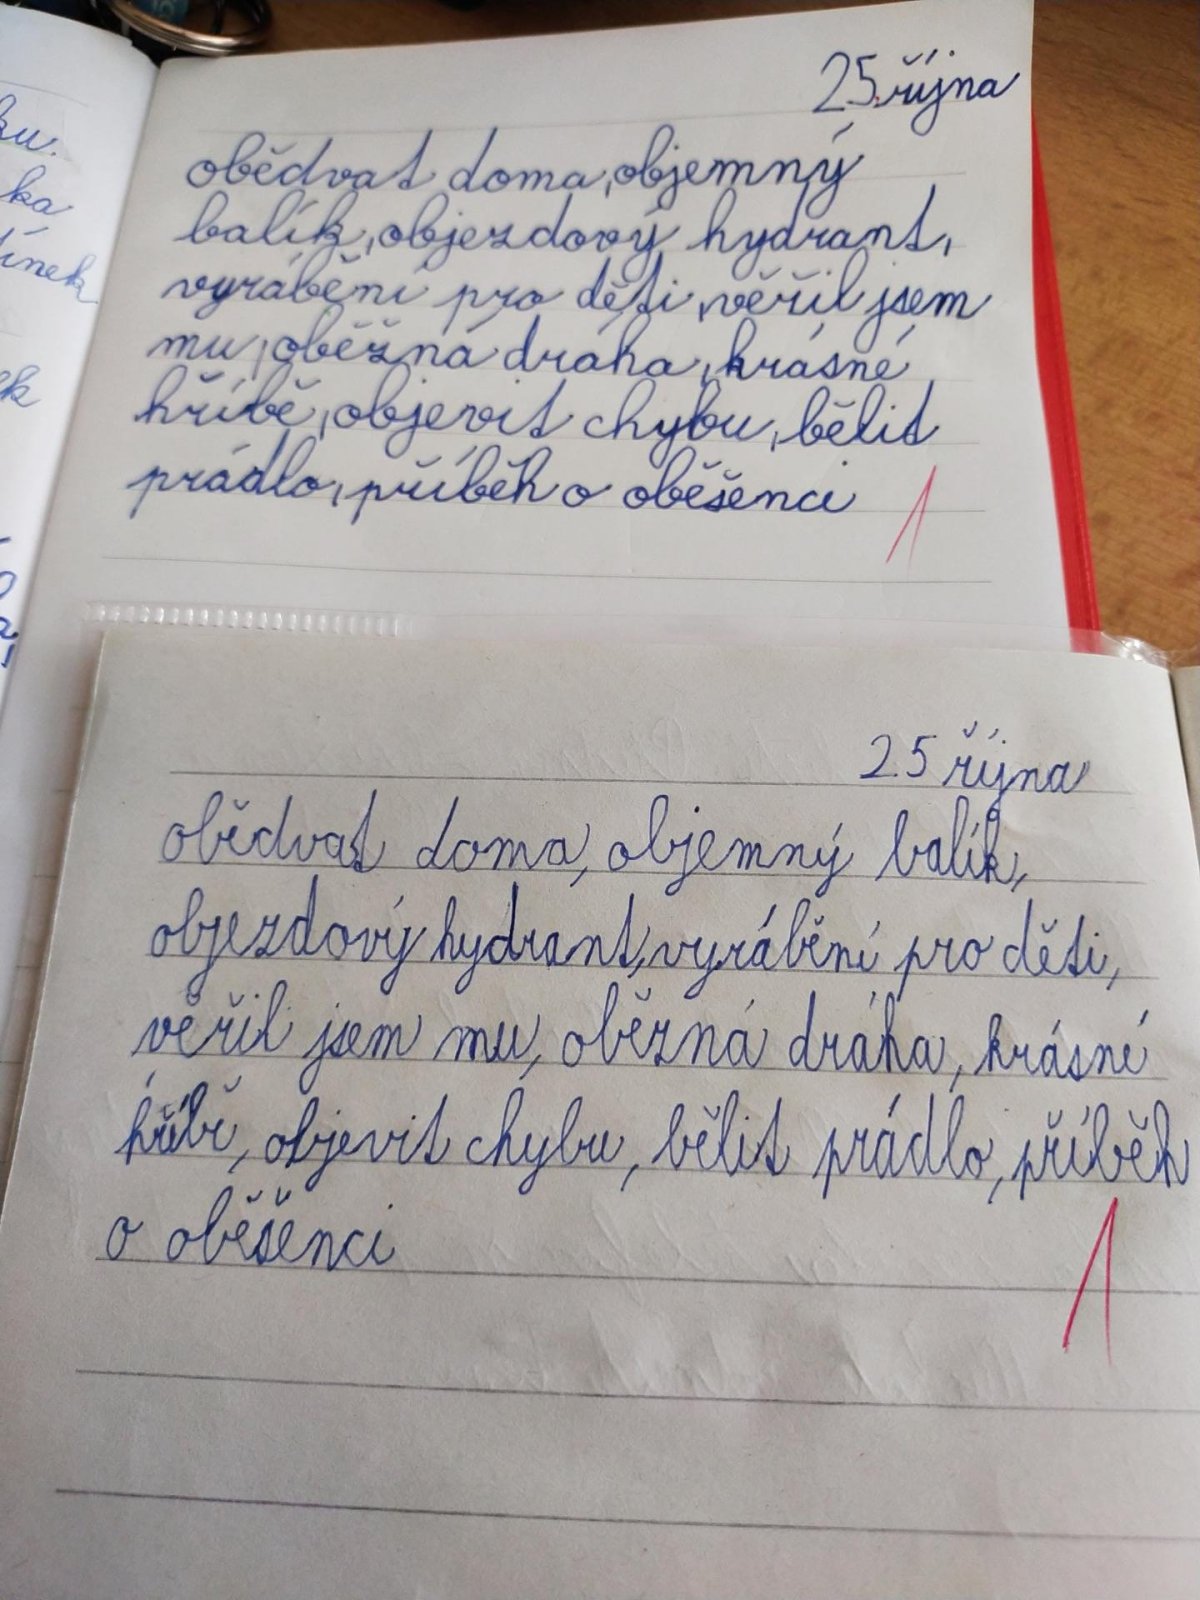 ku.
ka
tínek
ek
25. října
obědvat doma, objemný
balík, objezdový hydrant,
vyrábění pro děti, věřil jsem
mu, oběžná dráha, krásné
hříbě, objevit chybu, bělit
prádlo, příběh o oběšenci
1
25 října
obědvat doma, objemný balík,
objezdový hydrant, vyrábění pro děti,
věřil jsem mu, oběžná dráha, krásné
hříbě, objevit chybu, bělit prádlo, příběh
o oběšenci
1